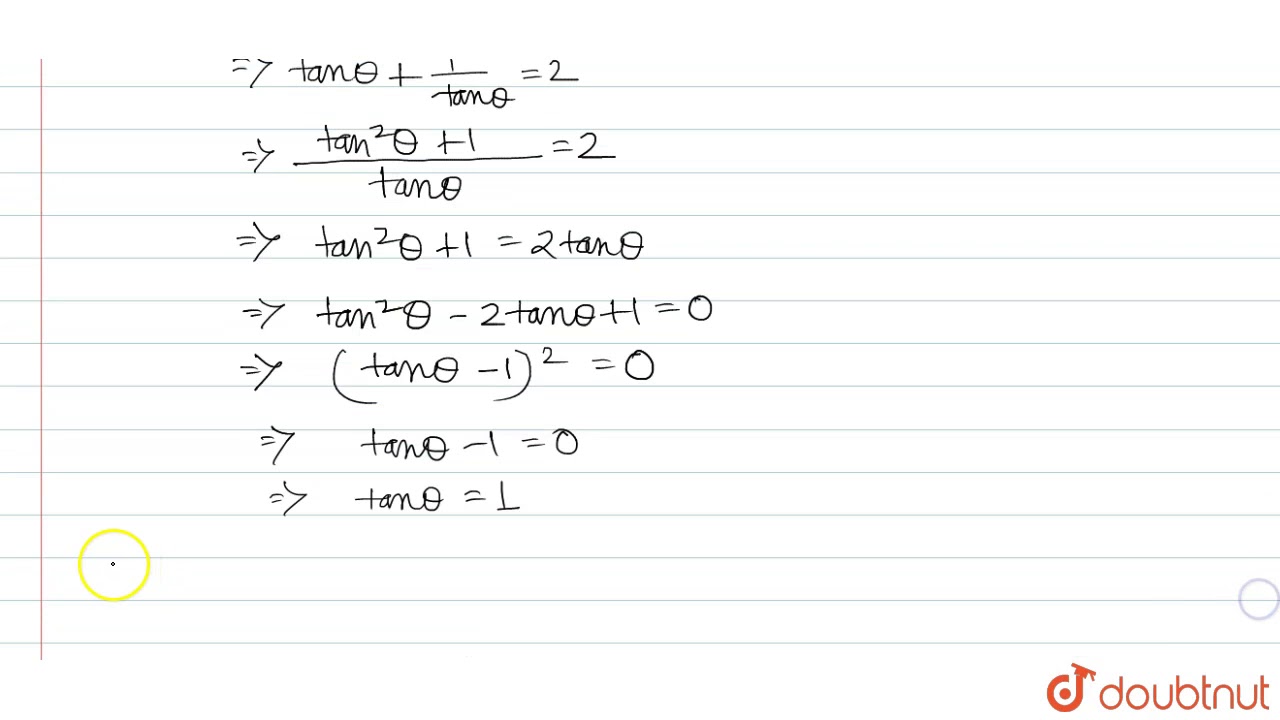 => tanθ + 1/tanθ = 2
=> (tan²θ + 1)/tanθ = 2
=> tan²θ + 1 = 2tanθ
=> tan²θ - 2tanθ + 1 = 0
=> (tanθ - 1)² = 0
=> tanθ - 1 = 0
=> tanθ = 1
doubtnut